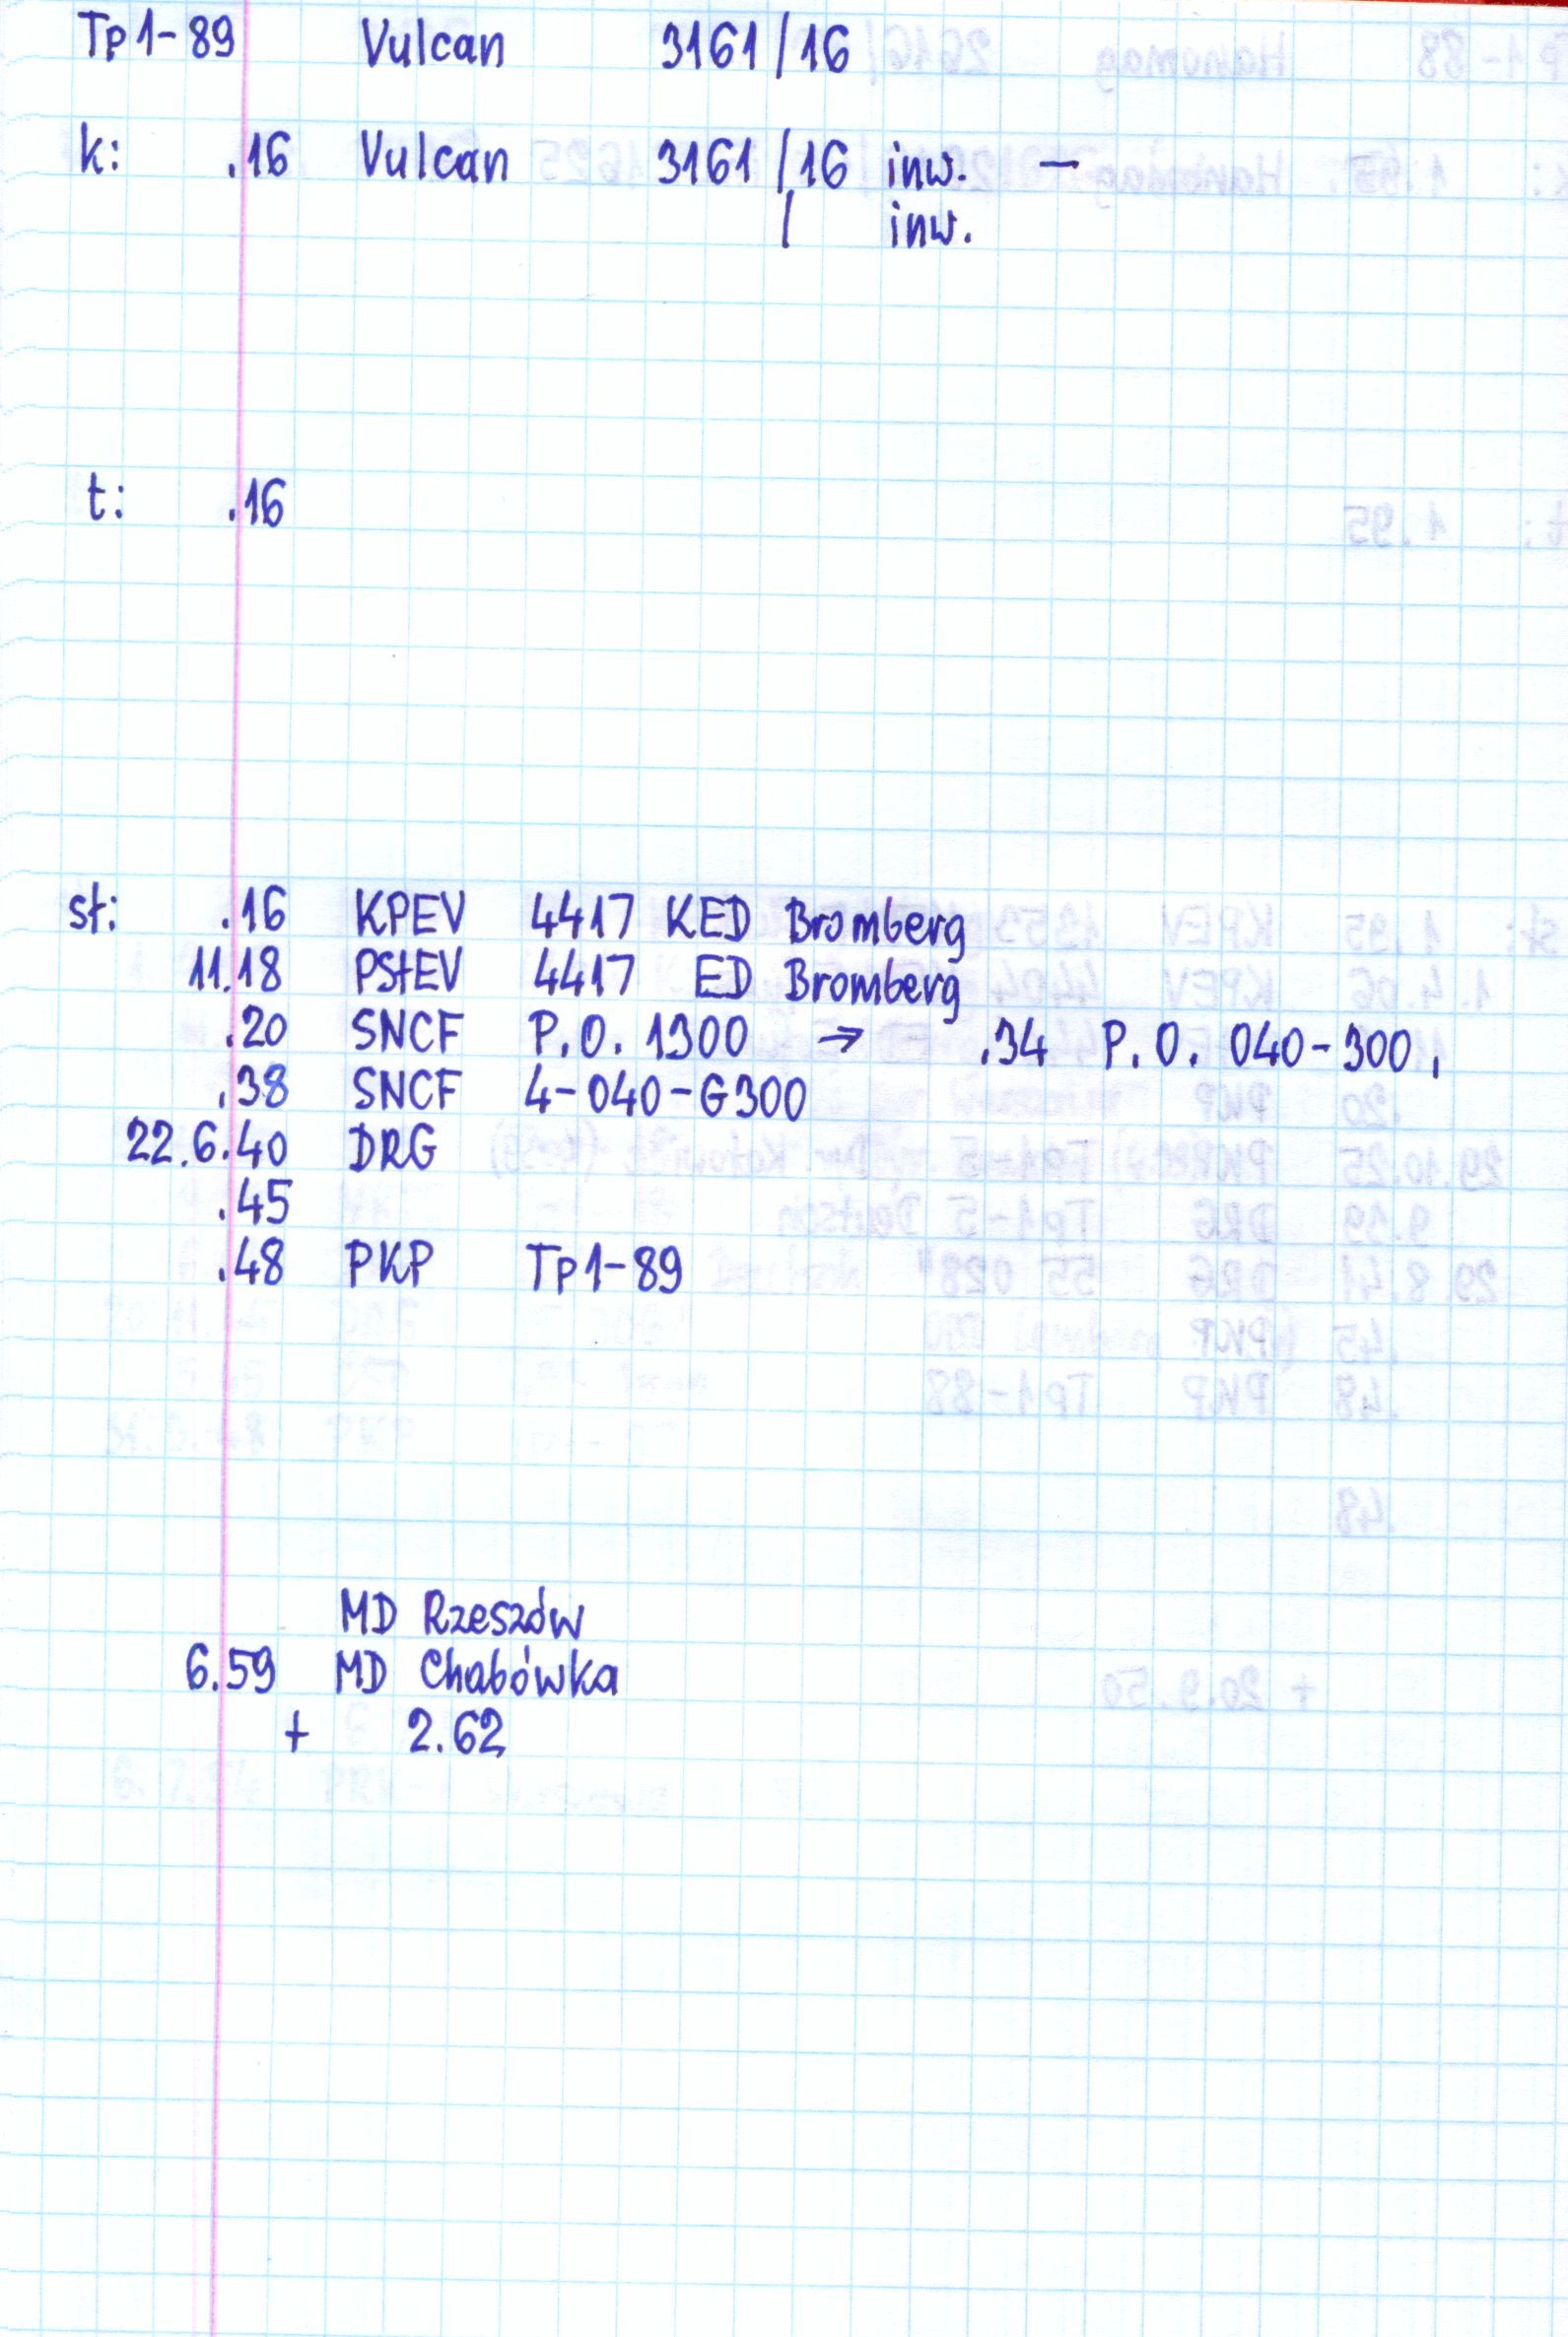 Tp1-89 Vulcan 3161/16
k: .16 Vulcan 3161/16 inw. —
/ inw.
t: .16
st: .16 KPEV 4417 KED Bromberg
11.18 PStEV 4417 ED Bromberg
.20 SNCF P.O. 1300 → .34 P.O. 040-300,
.38 SNCF 4-040-G300
22.6.40 DRG
.45
.48 PKP Tp1-89
MD Rzeszów
6.59 MD Chabówka
+ 2.62